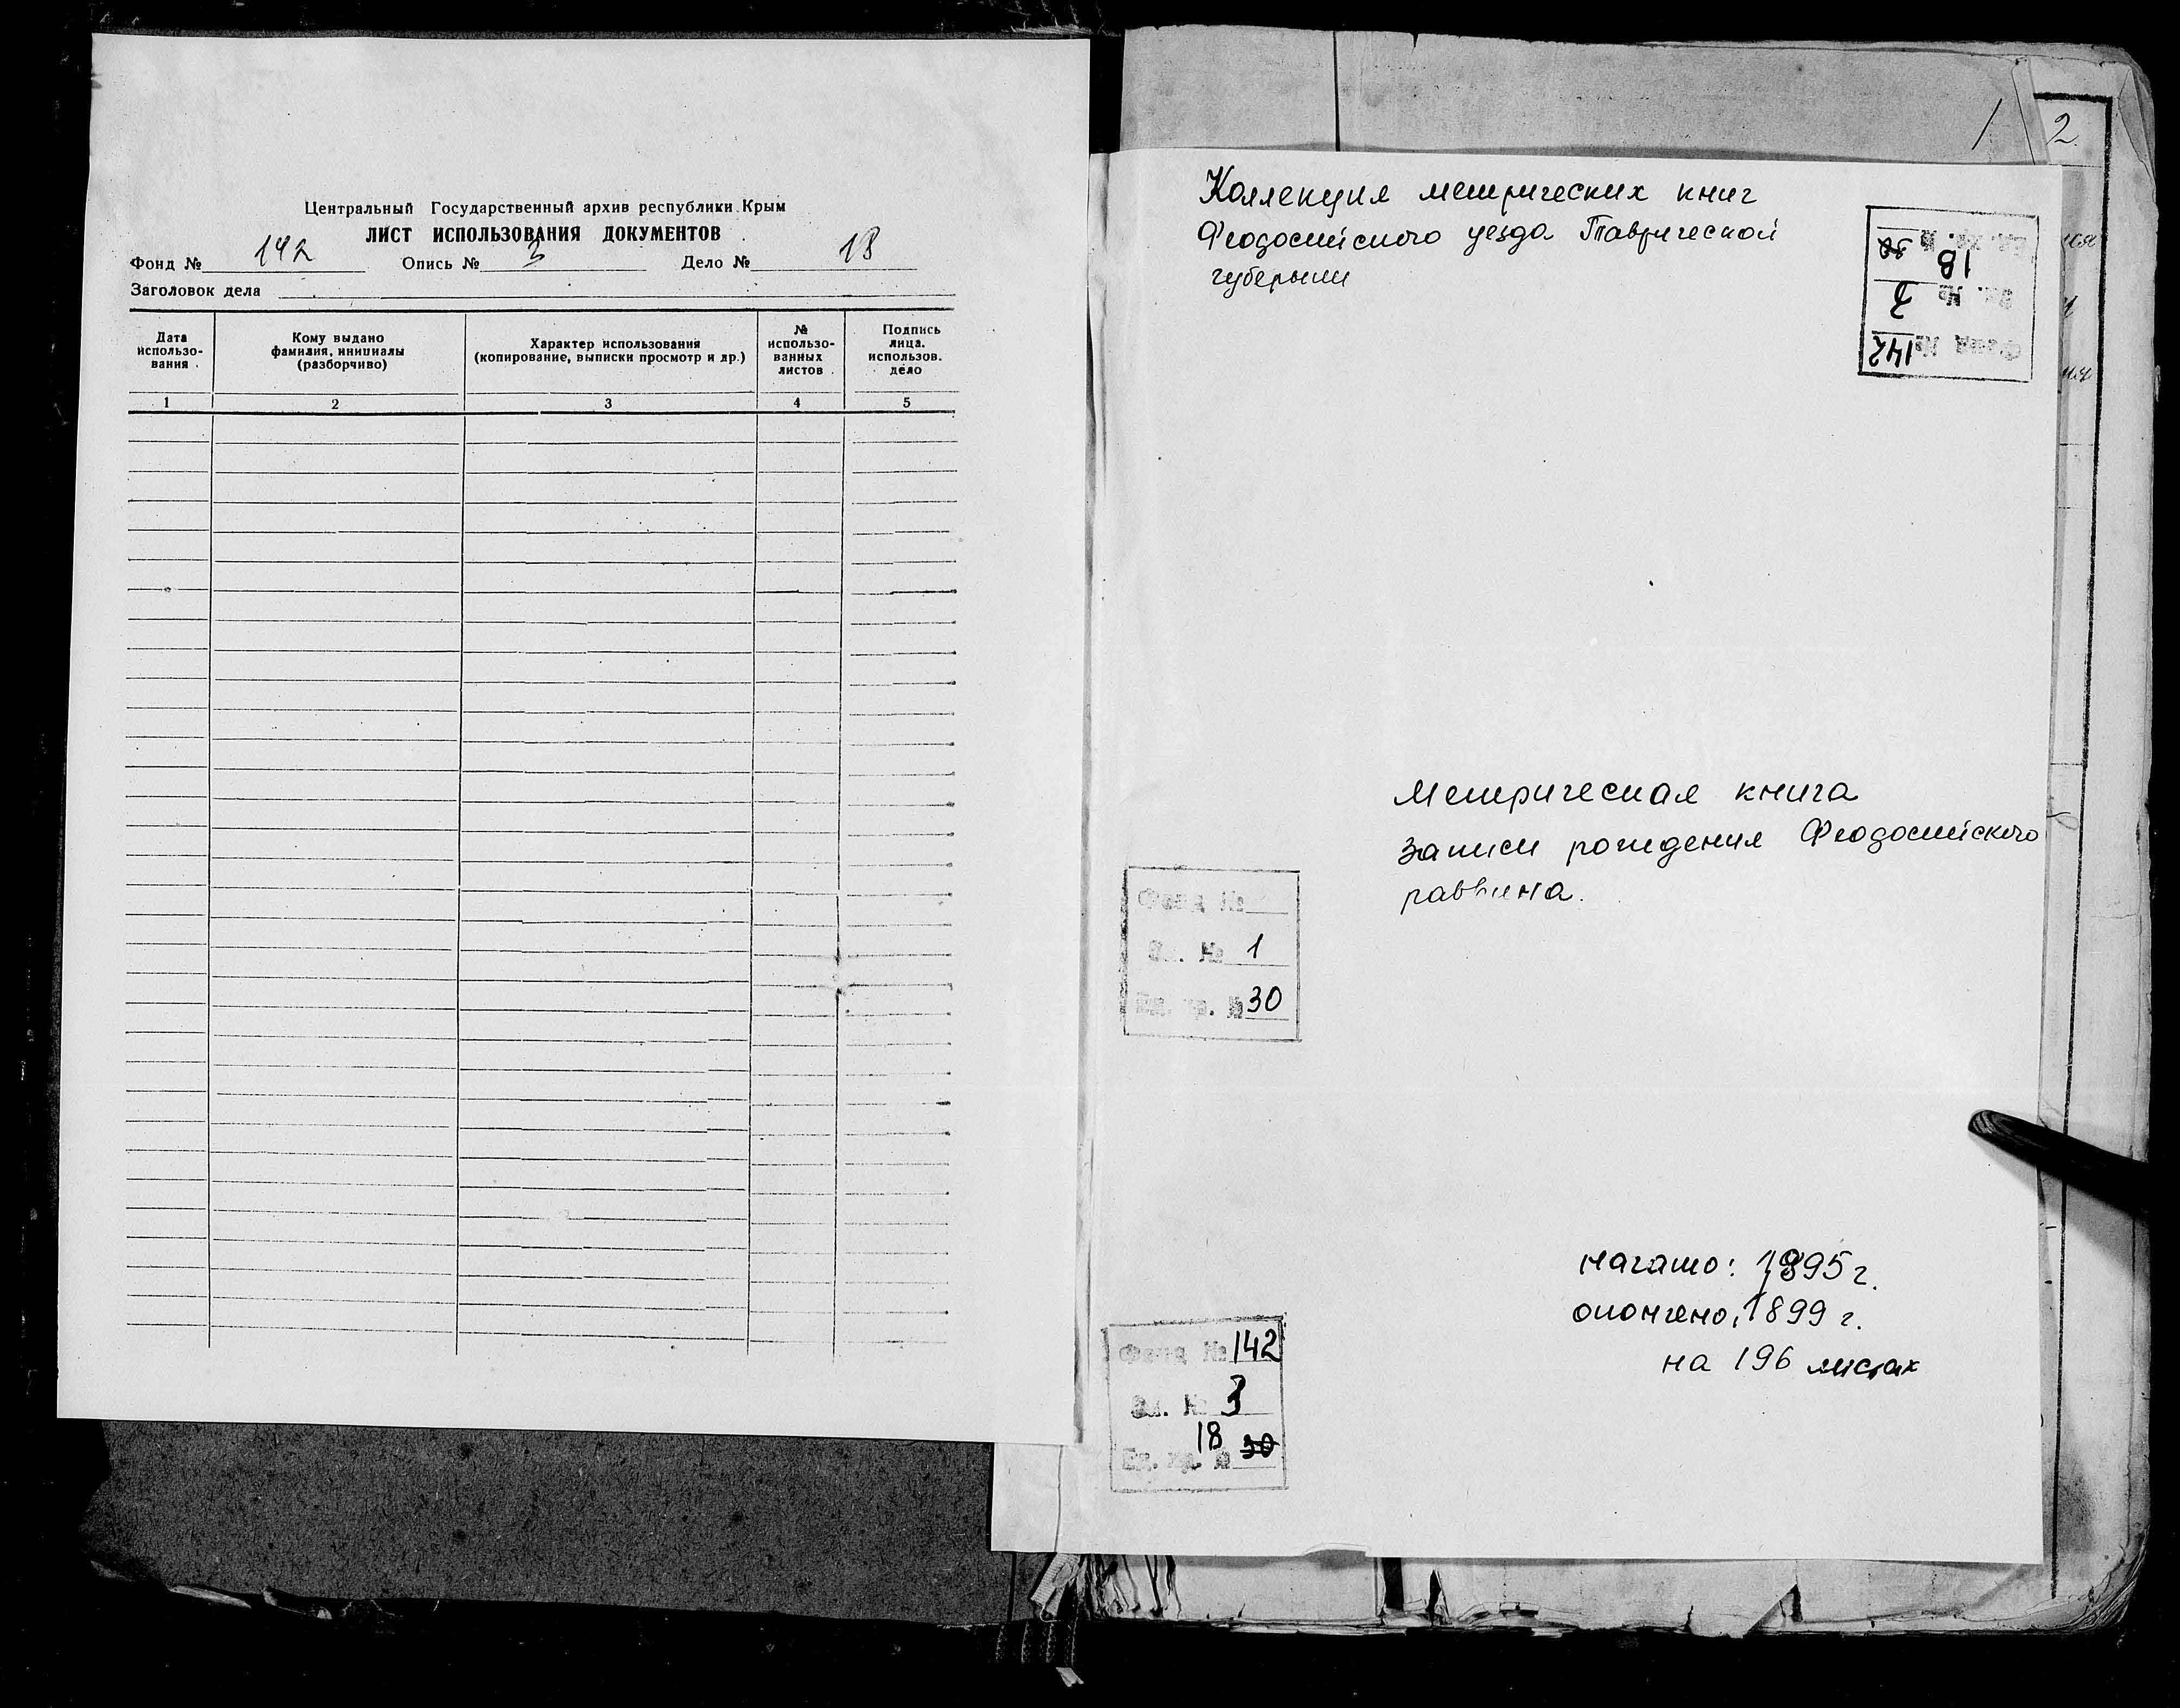 Центральный Государственный архив республики Крым
ЛИСТ ИСПОЛЬЗОВАНИЯ ДОКУМЕНТОВ
Фонд № 142 Опись № 3 Дело № 18
Заголовок дела
Дата использо-вания
Кому выдано фамилия, инициалы (разборчиво)
Характер использования (копирование, выписки просмотр и др.)
№ использо-ванных листов
Подпись лица. использов. дело
1 2 3 4 5
1 2.
Коллекция метрических книг
Феодосийского уезда Таврической
губернии
Фонд № 142
Оп. № 3
Ед. хр. № 18 30
Метрическая книга
записи рождения Феодосийского
раввина.
Фонд №
Оп. № 1
Ед. хр. № 30
начато: 1895 г.
окончено: 1899 г.
на 196 листах
Фонд № 142
Оп. № 3
18
Ед. хр. № 30